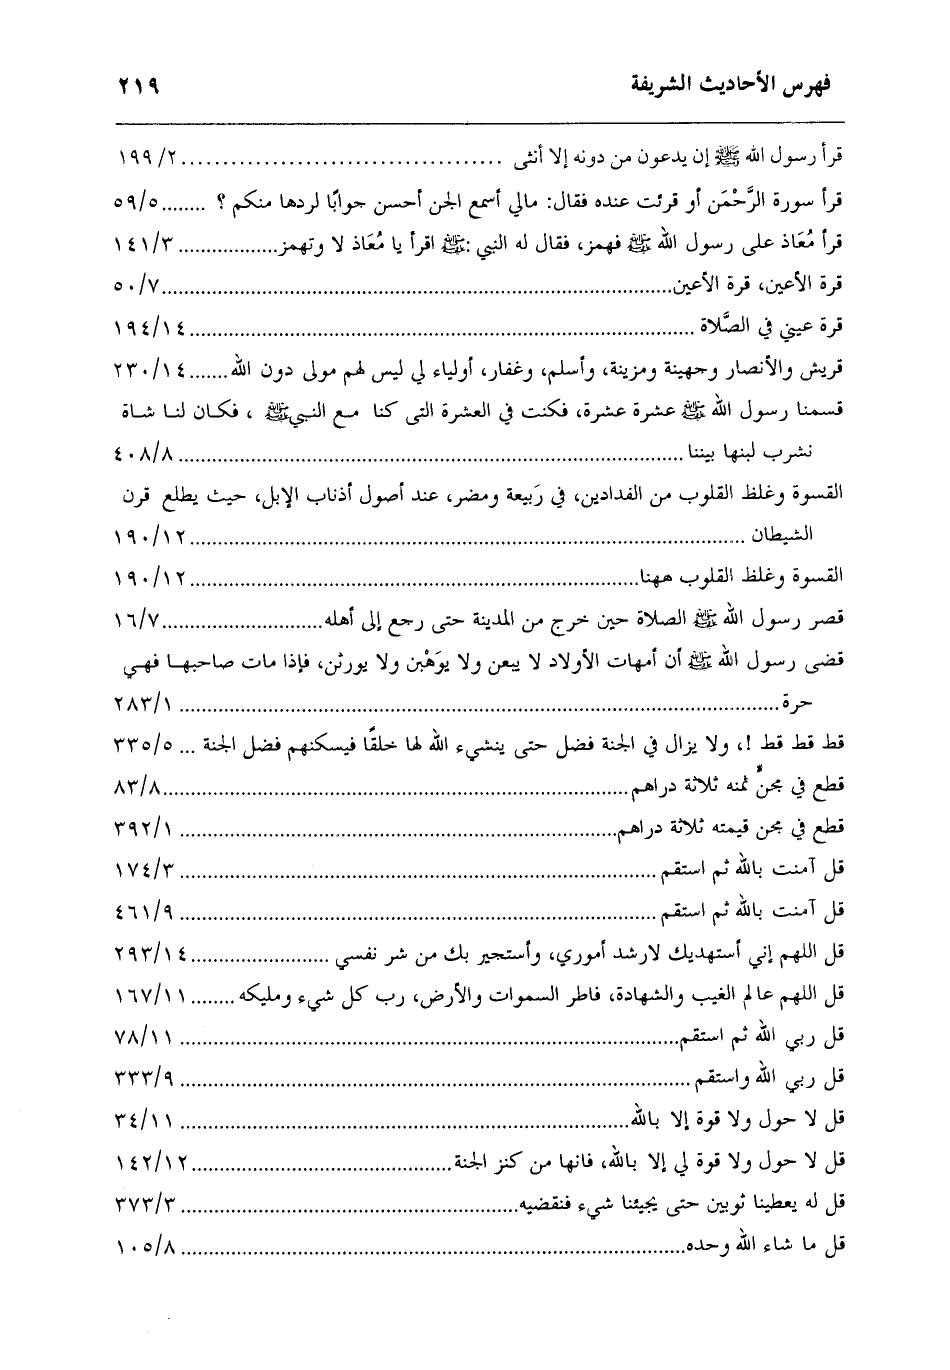 فهرس الأحاديث الشريفة ٢١٩
قرأ رسول الله ﷺ إن يدعون من دونه إلا أنثى ..................................... ١٩٩/٢
قرأ سورة الرَّحْمَن أو قرئت عنده فقال: مالي أسمع الجن أحسن جوابًا لردها منكم ؟ ........ ٥٩/٥
قرأ مُعَاذ على رسول الله ﷺ فهمز، فقال له النبي :ﷺ اقرأ يا مُعَاذ لا وتهمز................. ١٤١/٣
قرة الأعين، قرة الأعين........................................................................................ ٥٠/٧
قرة عيني في الصَّلاة ........................................................................................ ١٩٤/١٤
قريش والأنصار وجهينة ومزينة، وأسلم، وغفار، أولياء لي ليس لهم مولى دون الله....... ٢٣٠/١٤
قسمنا رسول الله ﷺ عشرة عشرة، فكنت في العشرة التى كنا مع النبيﷺ ، فكان لنا شاة
نشرب لبنها بيننا ........................................................................................ ٤٠٨/٨
القسوة وغلظ القلوب من الفدادين، في رَبيعة ومضر، عند أصول أذناب الإبل، حيث يطلع قرن
الشيطان ................................................................................................ ١٩٠/١٢
القسوة وغلظ القلوب ههنا............................................................................... ١٩٠/١٢
قصر رسول الله ﷺ الصلاة حين خرج من المدينة حتى رجع إلى أهله............................ ١٦/٧
قضى رسول الله ﷺ أن أمهات الأولاد لا يبعن ولا يوَهْبن ولا يورثن، فإذا مات صاحبها فهي
حرة........................................................................................................ ٢٨٣/١
قط قط قط !، ولا يزال في الجنة فضل حتى ينشيء الله لها خلقًا فيسكنهم فضل الجنة ... ٣٣٥/٥
قطع في مجنٌّ ثمنه ثلاثة دراهم.................................................................................. ٨٣/٨
قطع في مجن قيمته ثلاثة دراهم................................................................................ ٣٩٢/١
قل آمنت بالله ثم استقم ..................................................................................... ١٧٤/٣
قل آمنت بالله ثم استقم ..................................................................................... ٤٦١/٩
قل اللهم إني أستهديك لارشد أموري، وأستجير بك من شر نفسي ......................... ٢٩٣/١٤
قل اللهم عالم الغيب والشهادة، فاطر السموات والأرض، رب كل شيء ومليكه ........ ١٦٧/١١
قل ربي الله ثم استقم......................................................................................... ٧٨/١١
قل ربي الله واستقم ........................................................................................... ٣٣٣/٩
قل لا حول ولا قوة إلا بالله................................................................................. ٣٤/١١
قل لا حول ولا قوة لي إلا بالله، فانها من كنز الجنة............................................. ١٤٢/١٢
قل له يعطينا ثوبين حتى يجيئنا شيء فنقضيه........................................................... ٣٧٣/٣
قل ما شاء الله وحده........................................................................................ ١٠٥/٨